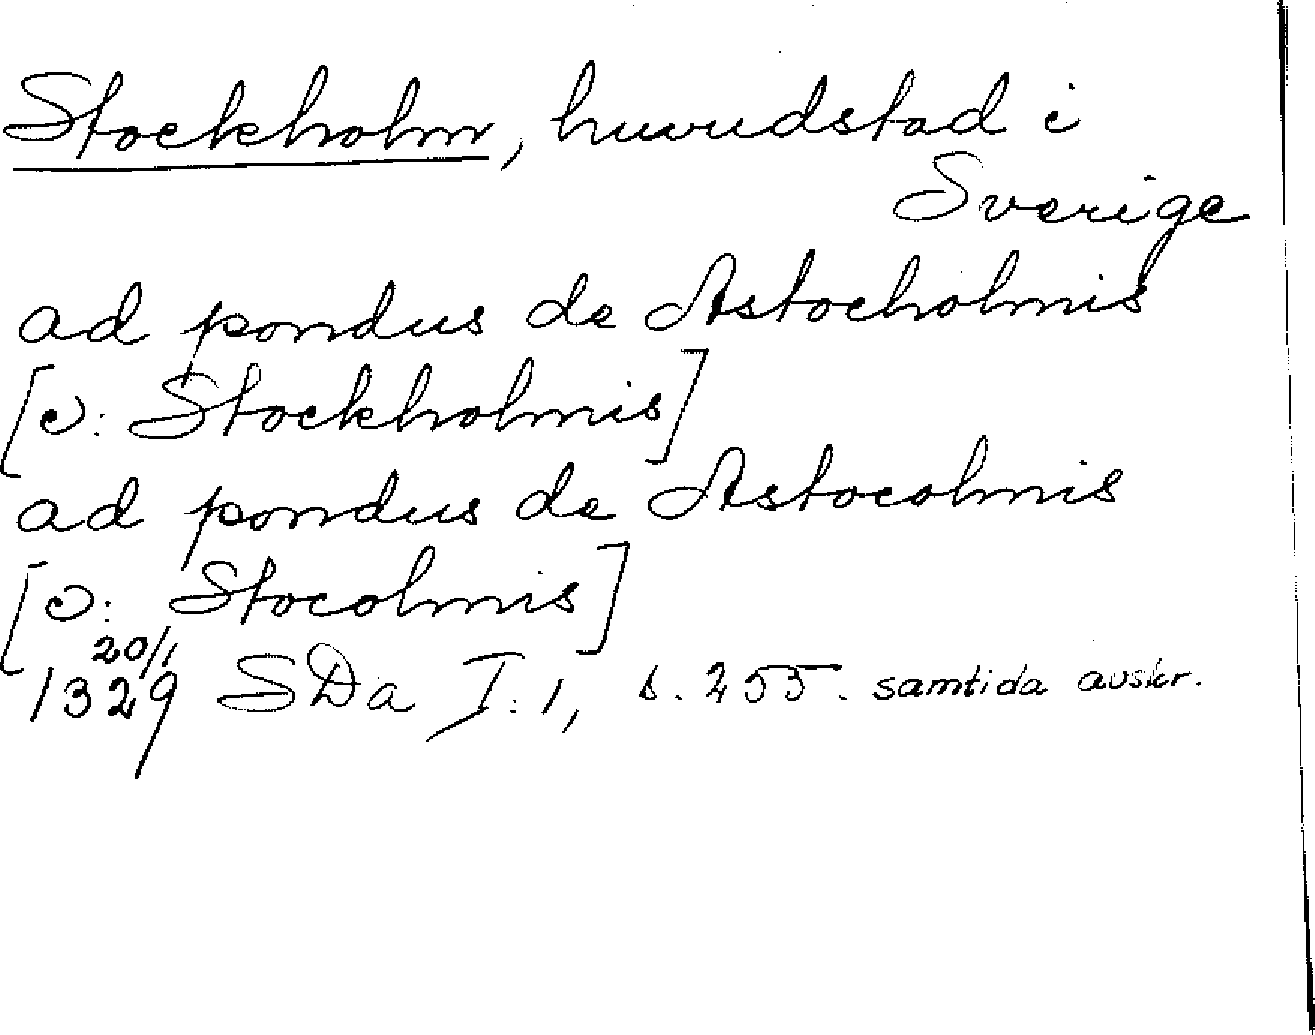 Stockholm, huvudstad i
Sverige
ad pondus de Astocholmis
[o: Stockholmis]
ad pondus de Astocolmis
[o: Stocolmis]
20/1
1329 SDa I:1, s. 255. samtida avskr.